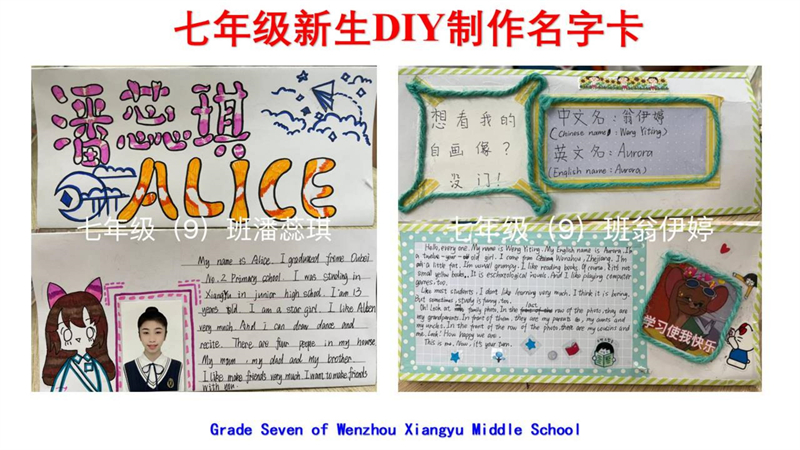 七年级新生DIY制作名字卡
潘蕊琪
ALICE
七年级（9）班潘蕊琪
My name is Alice. I graduated from Oubei
No.2 Primary school. I was studing in
XiangYu in junior high school. I am 13
years told. I am a star girl. I like Alben
very much. And i can draw dance and
recite. There are four peope in my house
My mom, my dad and my brother.
I like make friends very much I want to make friends
with you.
想看我的
自画像？
没门！
中文名：翁伊婷
(Chinese name: Weng Yiting)
英文名：Aurora
(English name: Aurora)
七年级（9）班翁伊婷
Hello, every one. My name is Weng Yiting. My English name is Aurora. I'm
a twelve-year-old girl. I come from Wenzhou, Zhejiang. I'm
a little fat. I'm usual grumpy. I like reading body
small yellow body. It is eschatological novels. And I like playing computer
games, too.
Like most students, I dont like learning very much. I think it is boring.
But sometimes, study is funny too.
Oh! Look at family photo. In the last row of the photo, they are
my grandparents. In front of them, they are my parents, my aunts and
my uncles. In the front of the row of the photo, there are my cousins and
me. Look! How happy we are.
This is me. Now, it's your turn.
学习使我快乐
Grade Seven of Wenzhou Xiangyu Middle School